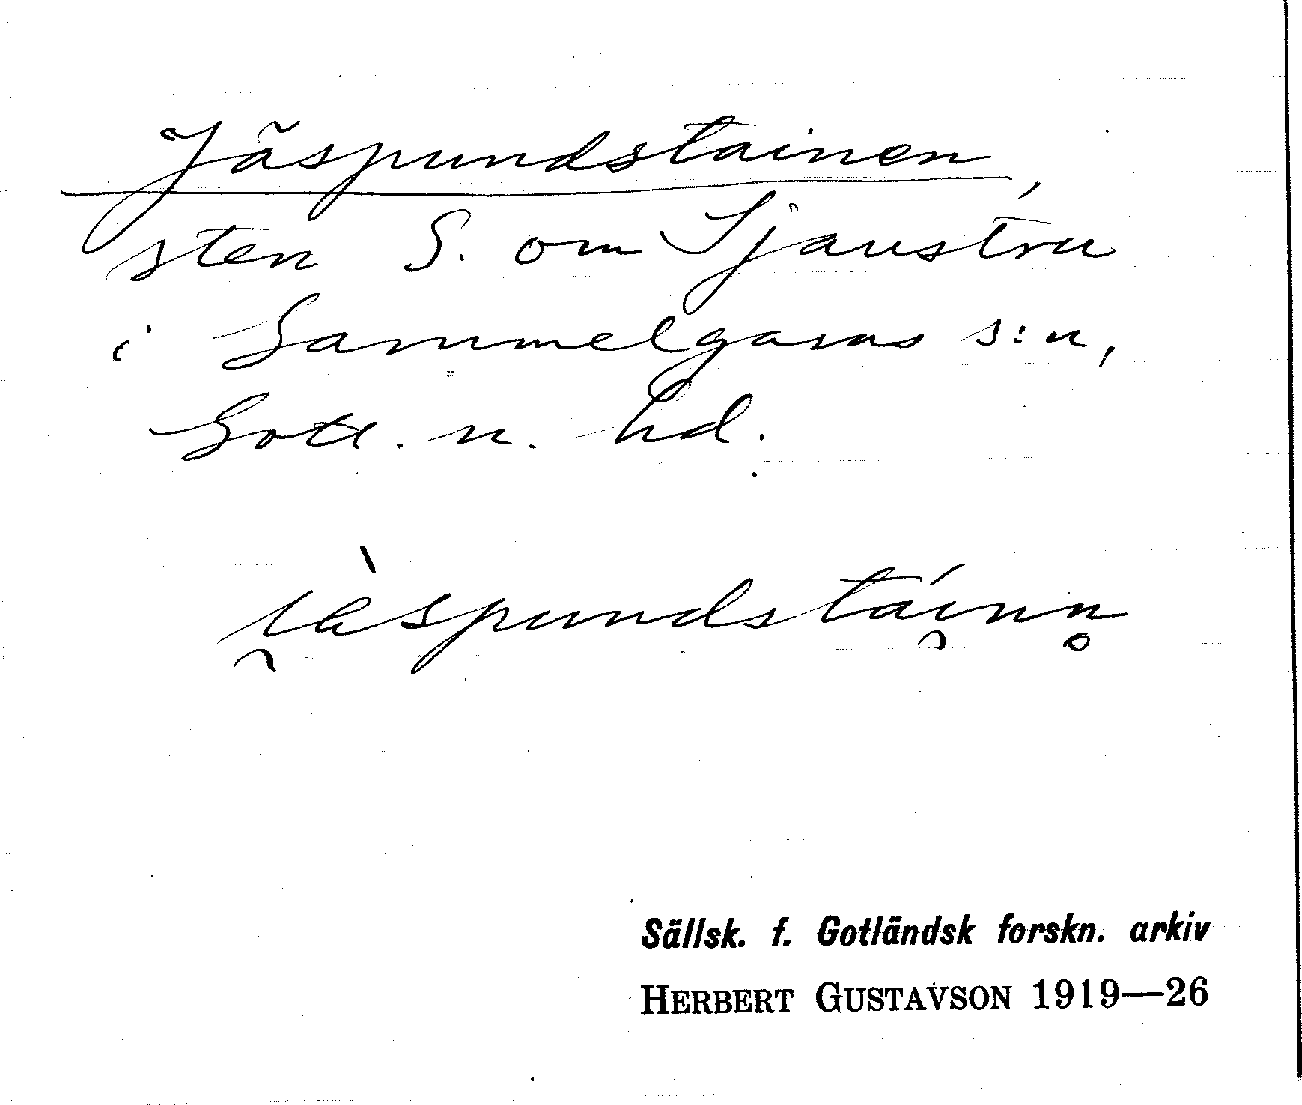 Jäspundstainen,
sten S. om Sjaustru
i Gammelgarns s:n,
Gotl. n. hd.
i̯àspundstái̯nn̥
Sällsk. f. Gotländsk forskn. arkiv
HERBERT GUSTAVSON 1919—26